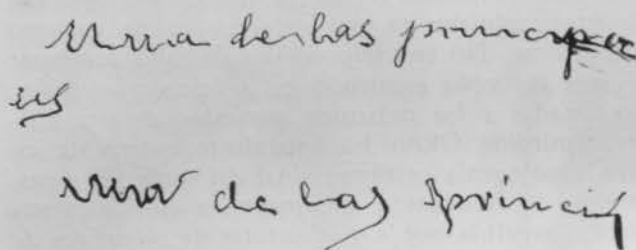 una de las principa
es
una de las princip